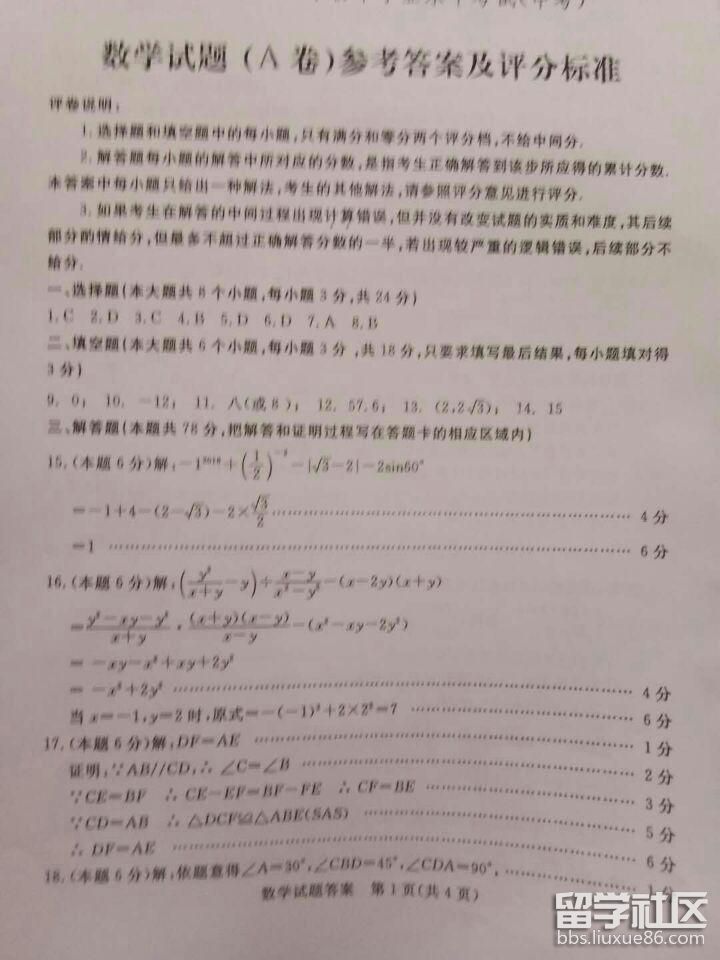 数学试题(A卷)参考答案及评分标准
评卷说明:
1.选择题和填空题中的每小题,只有满分和零分两个评分档,不给中间分.
2.解答题每小题的解答中所对应的分数,是指考生正确解答到该步所应得的累计分数.
本答案中每小题只给出一种解法,考生的其他解法,请参照评分意见进行评分.
3.如果考生在解答的中间过程出现计算错误,但并没有改变试题的实质和难度,其后续
部分酌情给分,但最多不超过正确解答分数的一半,若出现较严重的逻辑错误,后续部分不
给分.
一、选择题(本大题共8个小题,每小题3分,共24分)
1.C 2.D 3.C 4.B 5.D 6.D 7.A 8.B
二、填空题(本大题共6个小题,每小题3分,共18分,只要求填写最后结果,每小题填对得
3分)
9. 0; 10. -12; 11. 八(或8); 12. 57.6; 13. (2,2√3); 14. 15
三、解答题(本题共78分,把解答和证明过程写在答题卡的相应区域内)
15.(本题6分)解:-1²⁰¹⁸+(1/2)⁻²-|√3-2|-2sin60°
=-1+4-(2-√3)-2×√3/2 …… 4分
=1 …… 6分
16.(本题6分)解:(y²/(x+y)-y)÷(x-y)/(x²-y²)-(x-2y)(x+y)
=(y²-xy-y²)/(x+y)·(x+y)(x-y)/(x-y)-(x²-xy-2y²)
=-xy-x²+xy+2y²
=-x²+2y² …… 4分
当x=-1,y=2时,原式=-(-1)²+2×2²=7 …… 6分
17.(本题6分)解:DF=AE …… 1分
证明:∵AB//CD,∴∠C=∠B …… 2分
∵CE=BF ∴CE-EF=BF-FE ∴CF=BE …… 3分
∵CD=AB ∴△DCF≌△ABE(SAS) …… 5分
∴DF=AE …… 6分
18.(本题6分)解:依题意得∠A=30°,∠CBD=45°,∠CDA=90°, …… 1分
数学试题答案 第1页(共4页)
留学社区
bbs.liuxue86.com